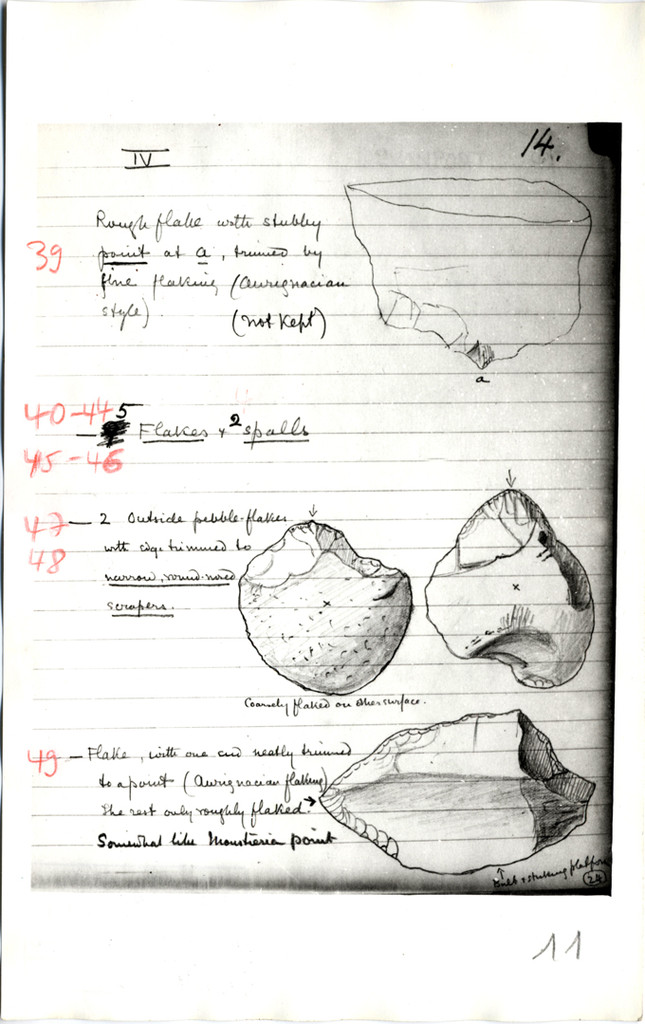 IV
14.
39
Rough flake with stubby
point at a, trimmed by
fine flaking (Aurignacian
style) (not kept)
a
40-44
5
— Flakes + 2 spalls
45-46
47 — 2 Outside pebble-flakes
48
with edge trimmed to
narrow, round-nosed
scrapers.
Coarsely flaked on other surface.
49 — Flake, with one end neatly trimmed
to a point (Aurignacian flaking)
The rest only roughly flaked.
Somewhat like Mousteria point
Bulb + striking platform
24
11